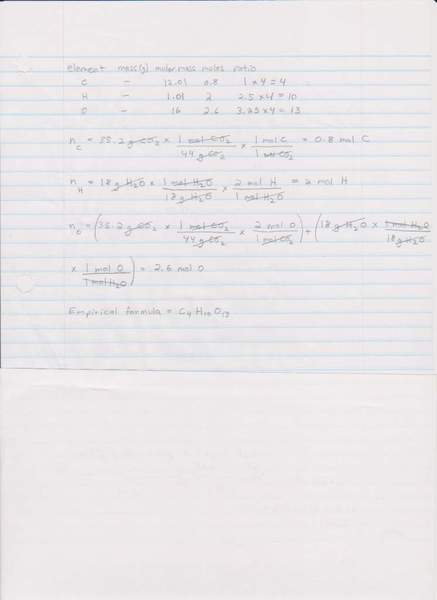 element mass(g) molar mass moles ratio
C - 12.01 0.8 1 x 4 = 4
H - 1.01 2 2.5 x 4 = 10
O - 16 2.6 3.25 x 4 = 13
n_C = 35.2 g CO₂ x 1 mol CO₂ / 44 g CO₂ x 1 mol C / 1 mol CO₂ = 0.8 mol C
n_H = 18 g H₂O x 1 mol H₂O / 18 g H₂O x 2 mol H / 1 mol H₂O = 2 mol H
n_O = (35.2 g CO₂ x 1 mol CO₂ / 44 g CO₂ x 2 mol O / 1 mol CO₂) + (18 g H₂O x 1 mol H₂O / 18 g H₂O
x 1 mol O / 1 mol H₂O) = 2.6 mol O
Empirical formula = C₄H₁₀O₁₃